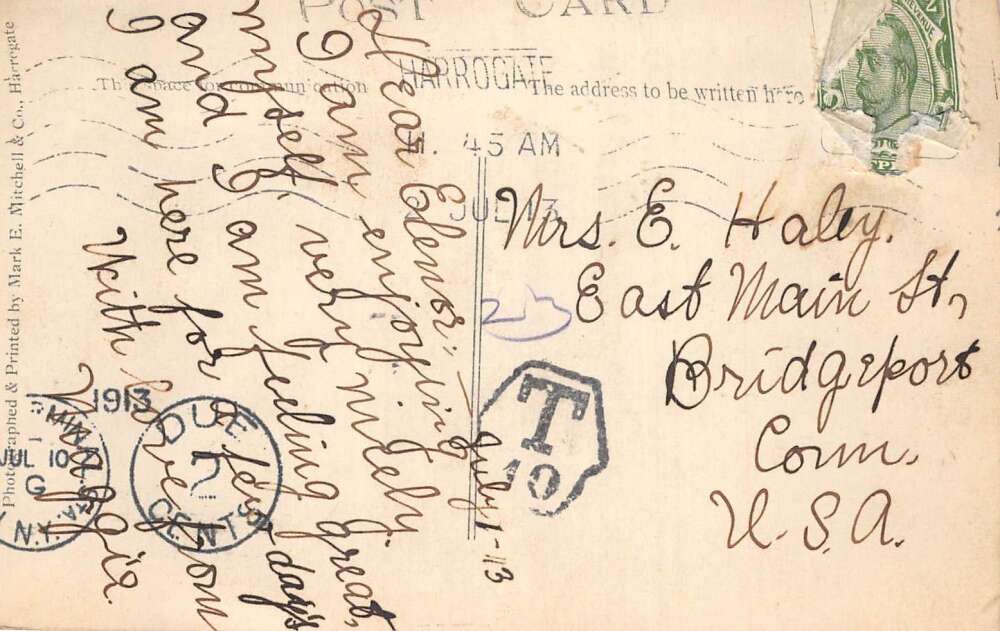 POST CARD
This space for communication
The address to be written here
HARROGATE
11. 45 AM
JUL 13
REVENUE
July 1-13
Dear Elenor:-
I am enjoying
myself very nicely.
and I am feeling great,
I am here for a few days
With love from
Maggie.
Mrs. E. Haley.
East Main St,
Bridgeport
Conn.
U.S.A.
T
10
DUE
2
CENTS
1913
JUL 10
G
N.Y.
Photographed & Printed by Mark E. Mitchell & Co., Harrogate